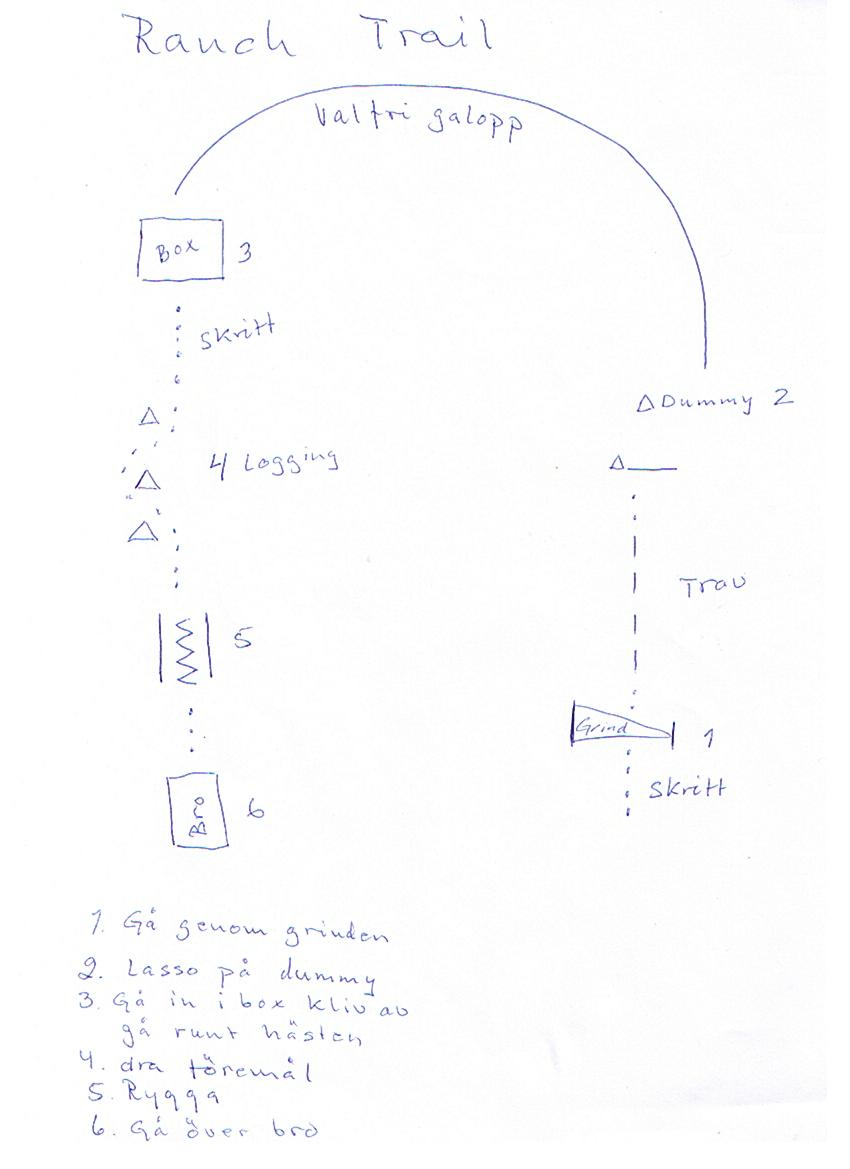 Ranch Trail
Valfri galopp
Box 3
Skritt
Dummy 2
4 Logging
Trav
5
Grind 1
Skritt
Bro 6
1. Gå genom grinden
2. Lasso på dummy
3. Gå in i box kliv av
gå runt hästen
4. dra föremål
5. Rygga
6. Gå över bro